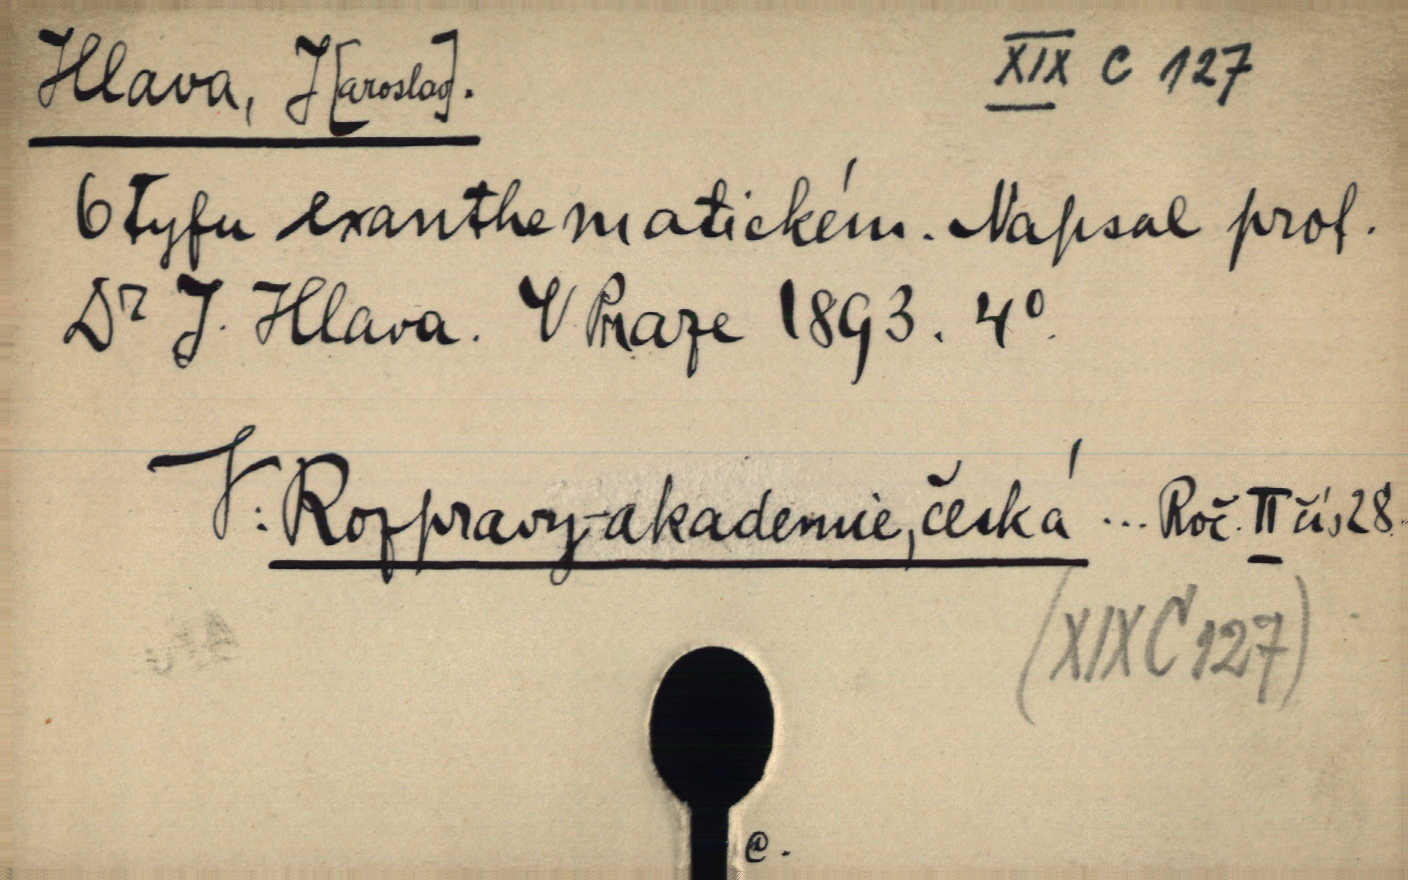 Hlava, J[aroslav]. XIX C 127
O tyfu exanthematickém. Napsal prof.
Dr J. Hlava. V Praze 1893. 4°.
V: Rozpravy-akademie, česká ... Roč. II čís 28.
(XIX C 127)
@.